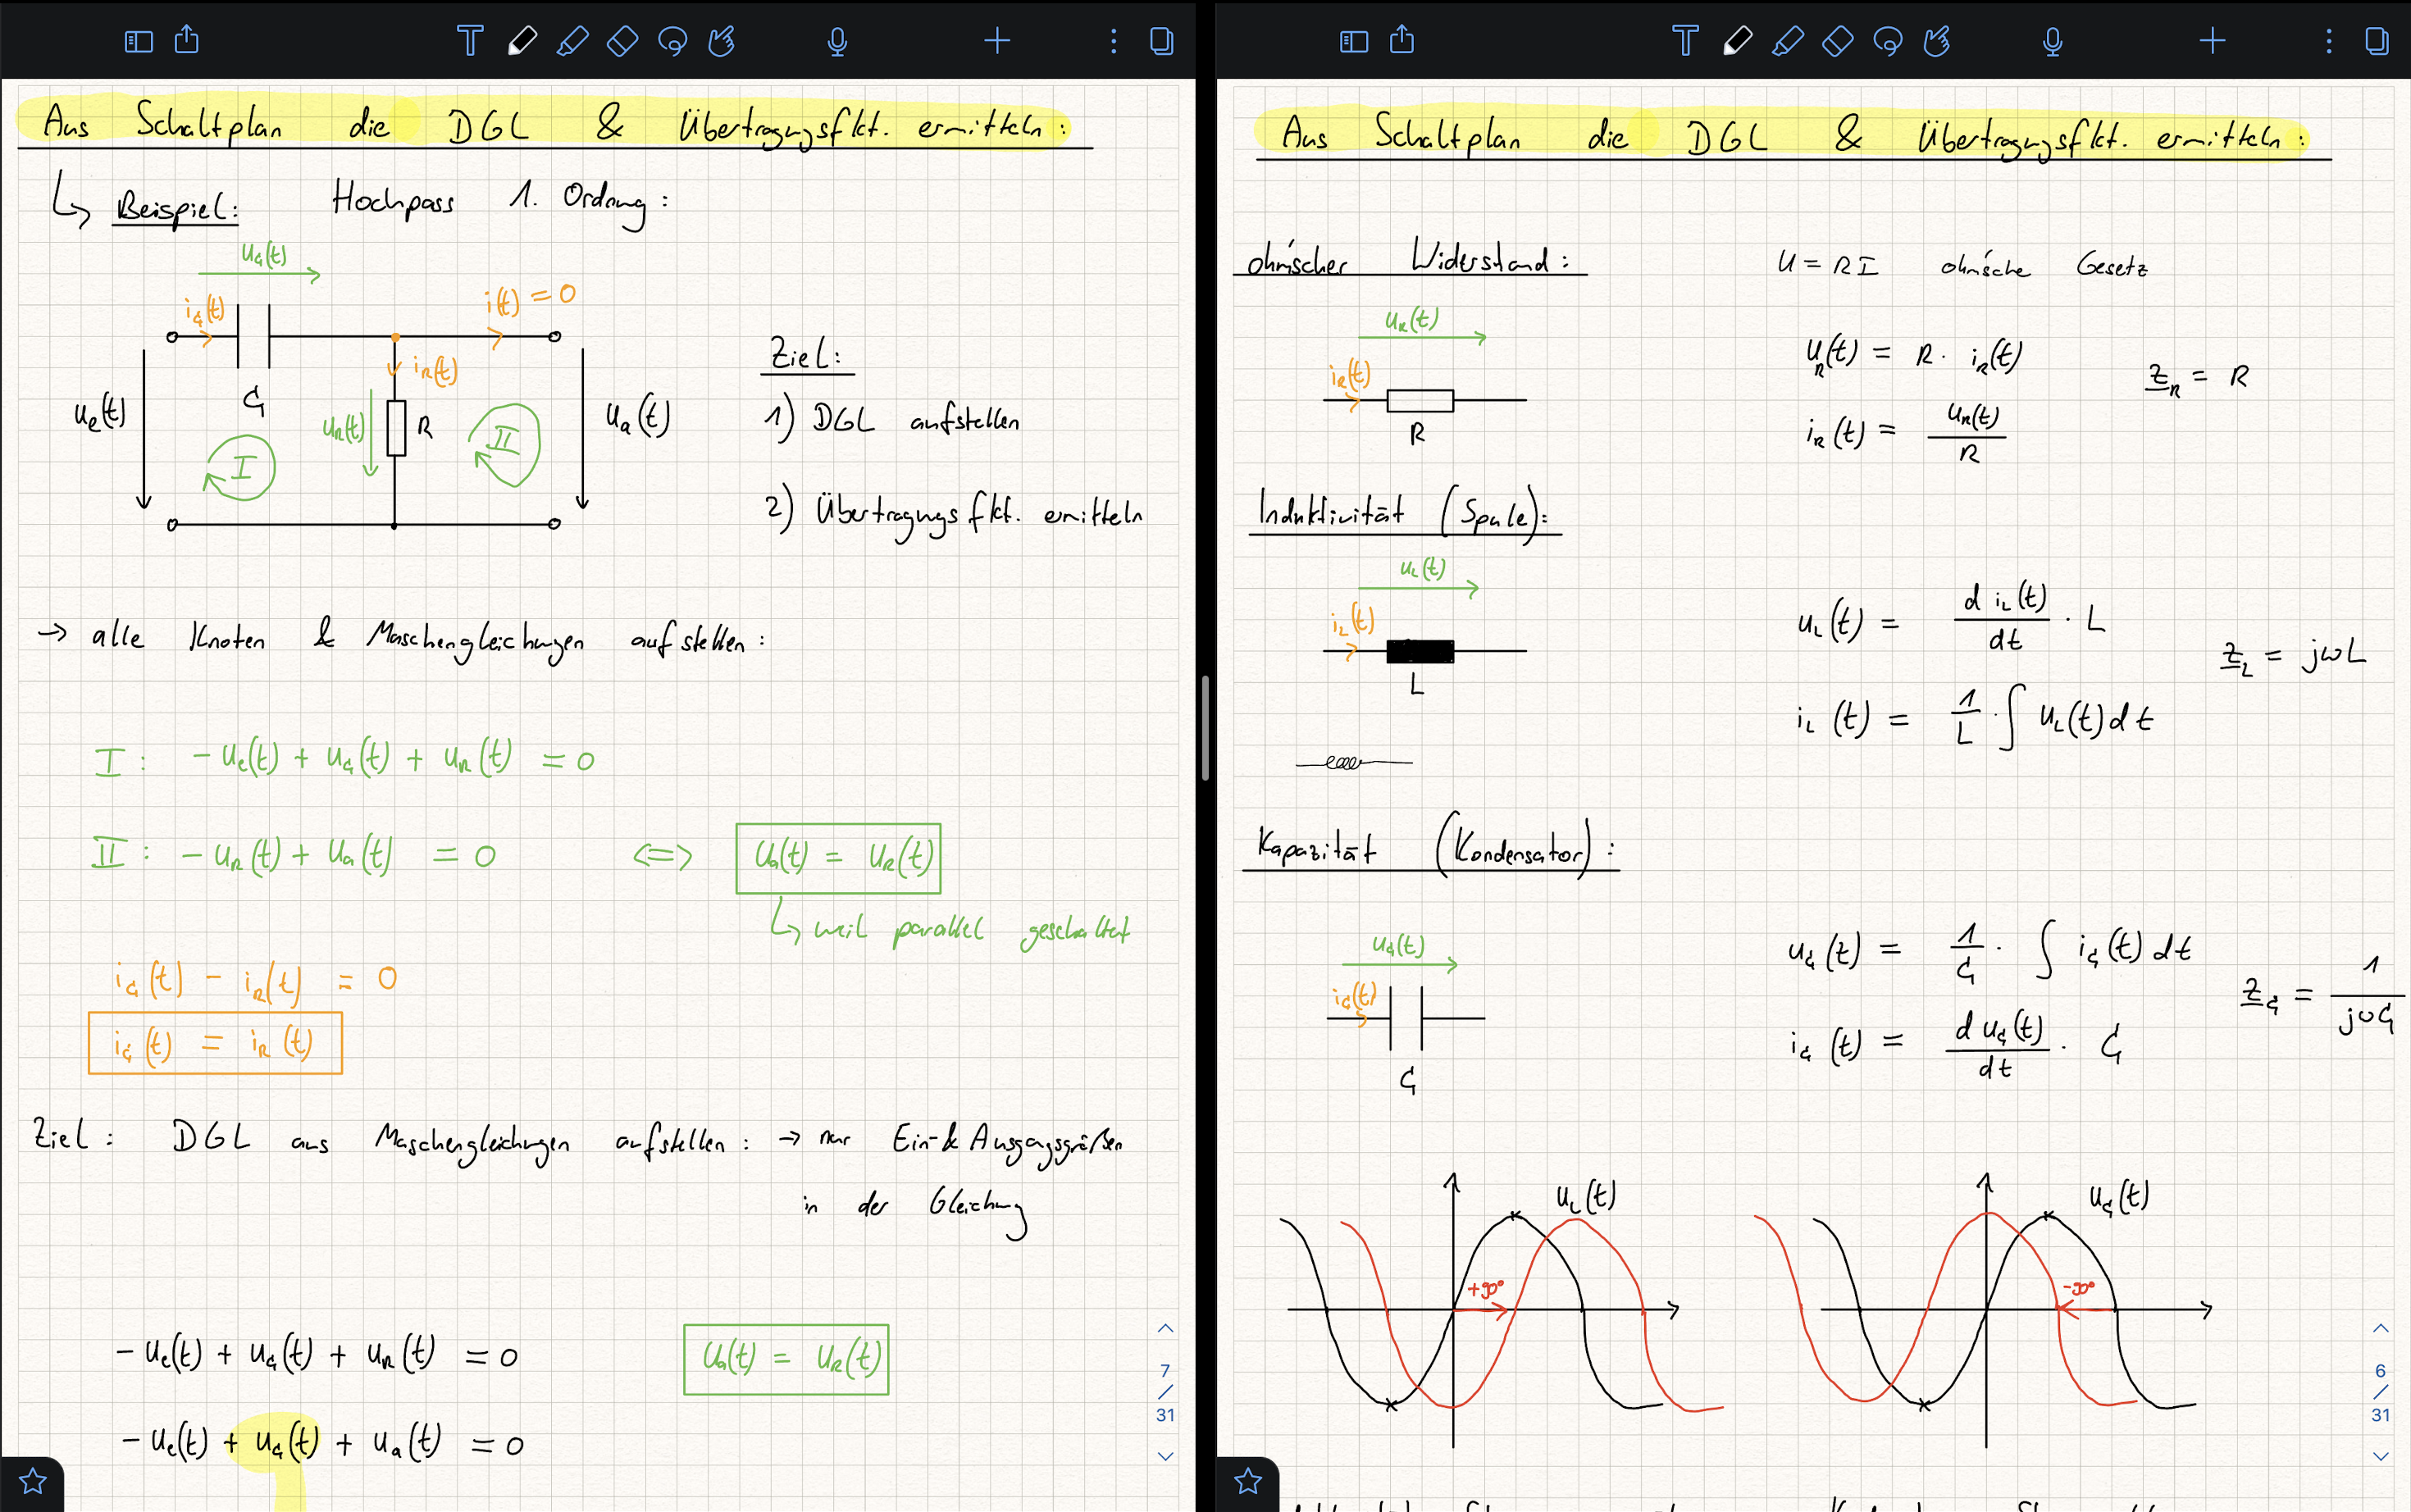 Aus Schaltplan die DGL & Übertragungsfkt. ermitteln:
↳ Beispiel: Hochpass 1. Ordnung:
u_C(t)
i_C(t)
i(t) = 0
i_R(t)
C
u_e(t)
u_R(t)
R
u_a(t)
I
II
Ziel:
1) DGL aufstellen
2) Übertragungsfkt. ermitteln
→ alle Knoten & Maschengleichungen aufstellen:
I: -u_e(t) + u_C(t) + u_R(t) = 0
II: -u_R(t) + u_a(t) = 0 <=> u_a(t) = u_R(t)
↳ weil parallel geschaltet
i_C(t) - i_R(t) = 0
i_C(t) = i_R(t)
Ziel: DGL aus Maschengleichungen aufstellen: → nur Ein- & Ausgangsgrößen
in der Gleichung
-u_e(t) + u_C(t) + u_R(t) = 0 u_a(t) = u_R(t)
-u_e(t) + u_C(t) + u_a(t) = 0
7
/
31
Aus Schaltplan die DGL & Übertragungsfkt. ermitteln:
ohmscher Widerstand: U = R I ohmsche Gesetz
u_R(t)
i_R(t)
R
u_R(t) = R · i_R(t)
i_R(t) = u_R(t) / R
Z_R = R
Induktivität (Spule):
u_L(t)
i_L(t)
L
u_L(t) = d i_L(t) / dt · L
i_L(t) = 1/L · ∫ u_L(t) dt
Z_L = jωL
Kapazität (Kondensator):
u_C(t)
i_C(t)
C
u_C(t) = 1/C · ∫ i_C(t) dt
i_C(t) = d u_C(t) / dt · C
Z_C = 1 / jωC
u_L(t)
+90°
u_C(t)
-90°
6
/
31